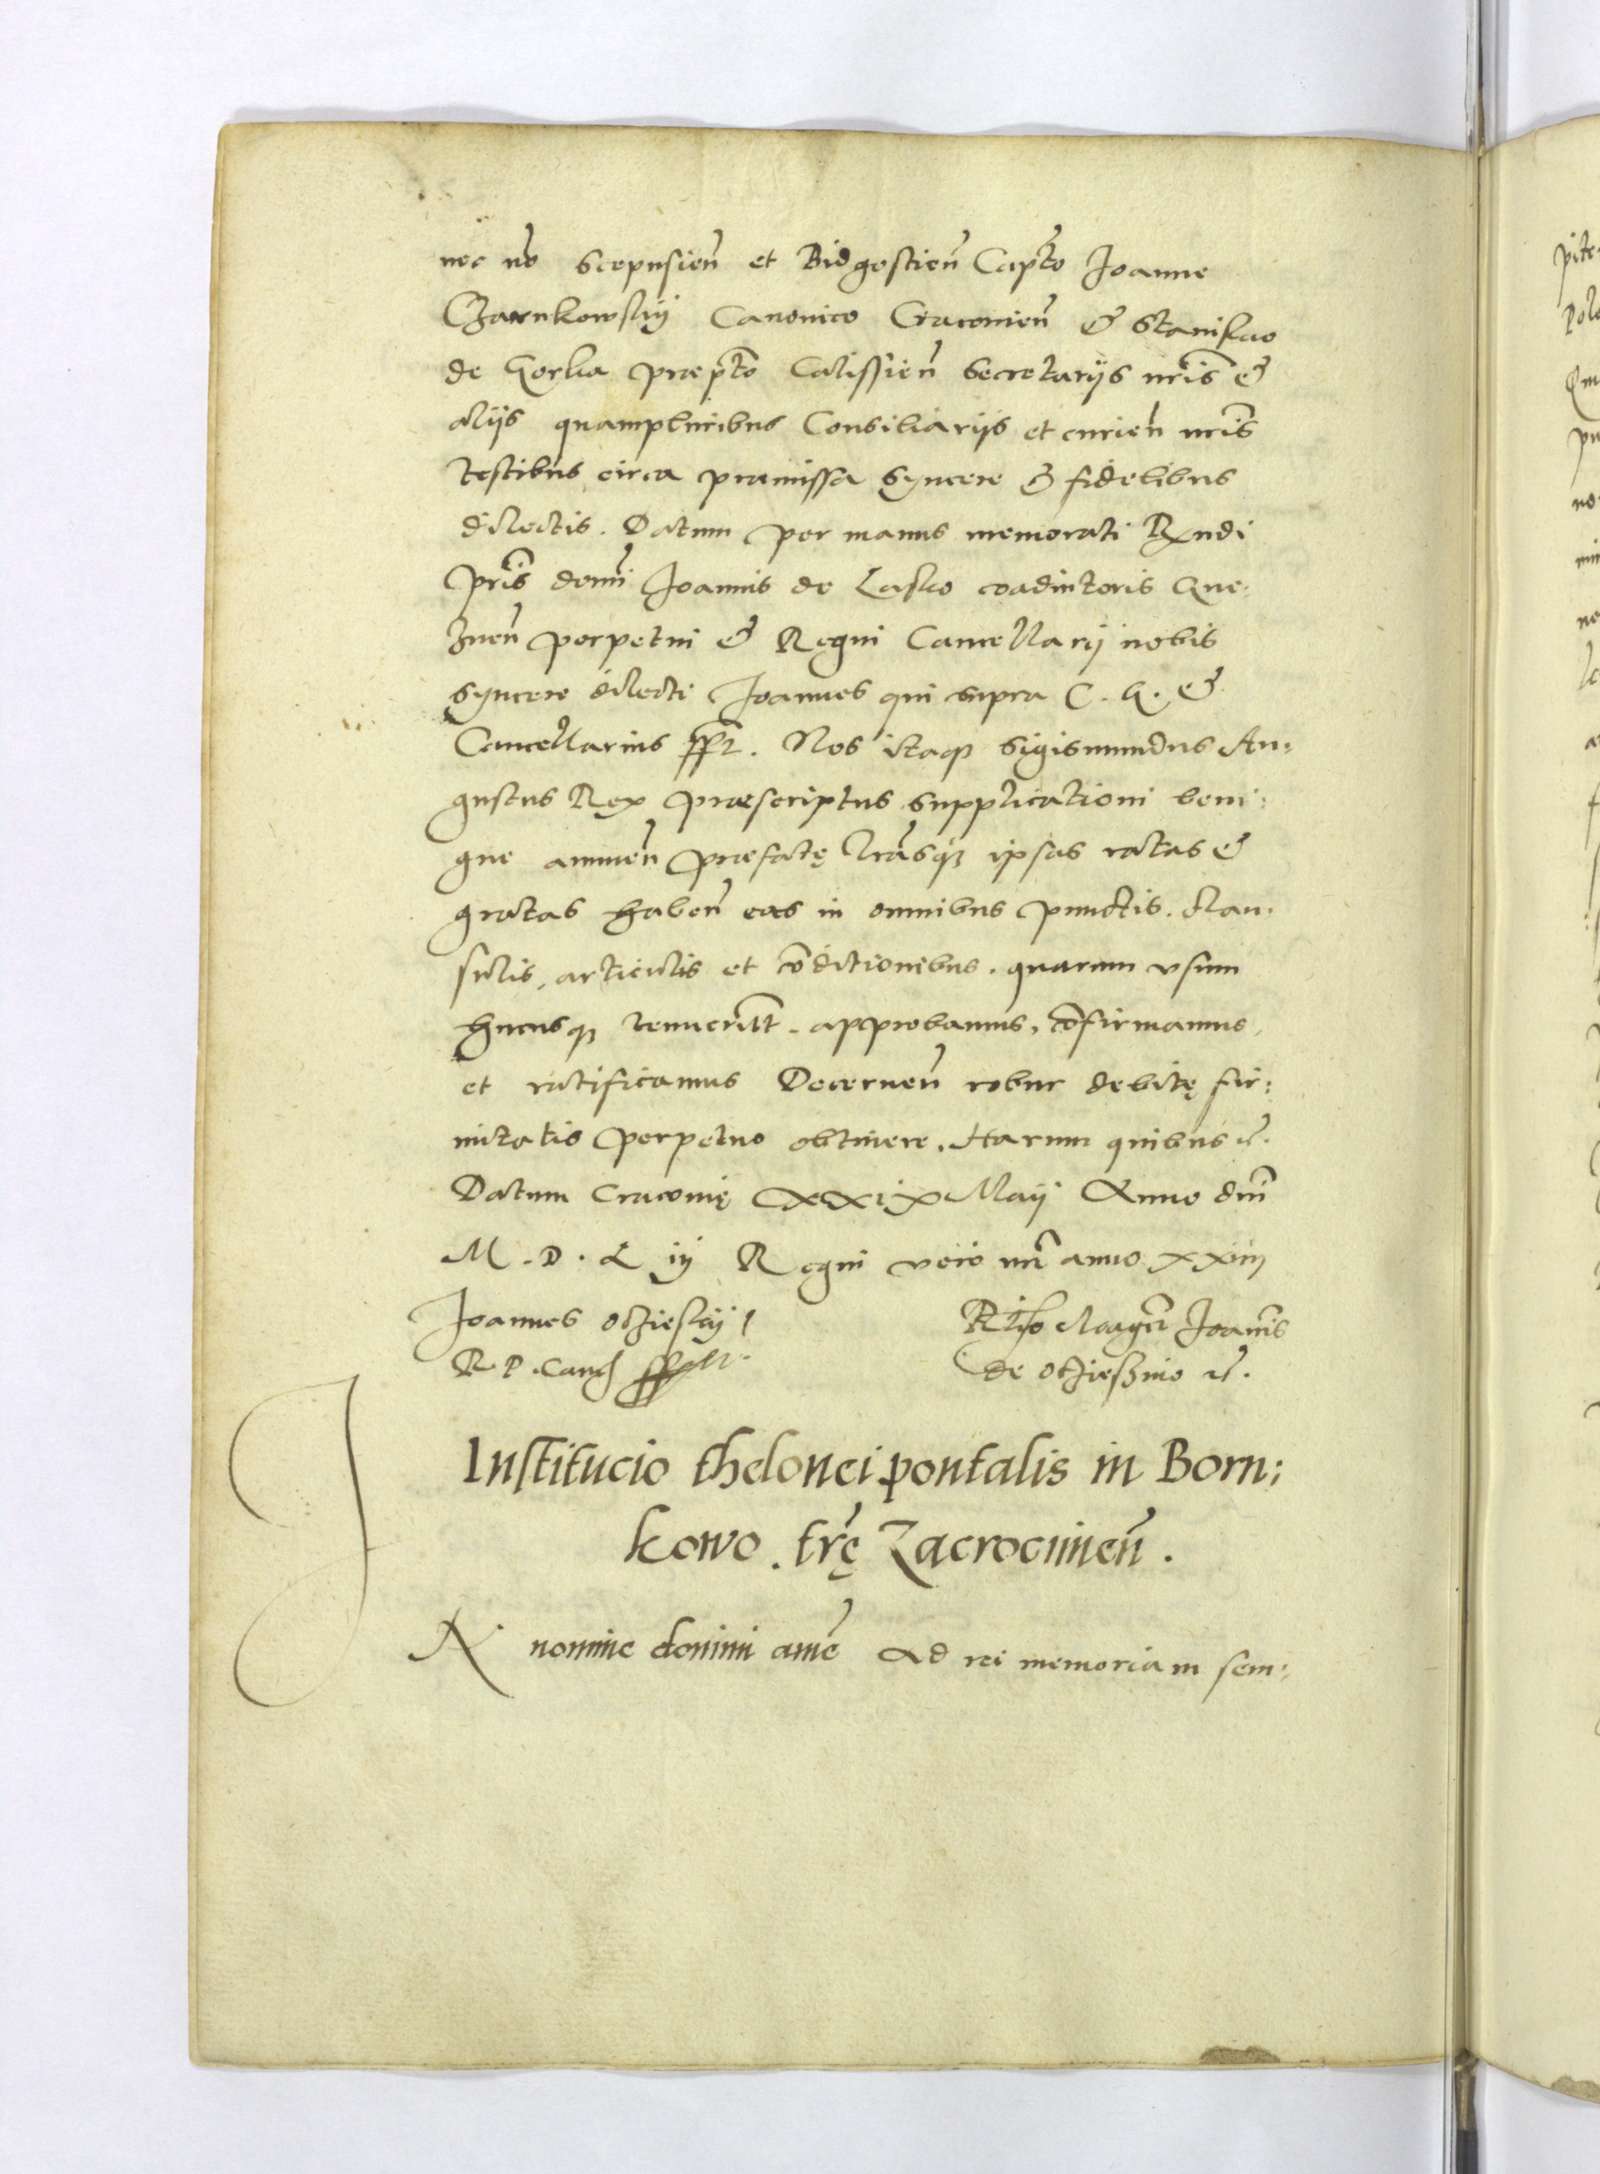 nec nõ Scepusien̄ et Bidgostien̄ Capt̃o Joanne
Czarnkowskij Canonico Cracouien̄ & Stanislao
de Gorka præpt̃o Calissien̄ Secretarijs nr̃is &
alijs quampluribus Consiliarijs et curien̄ nr̃is
testibus circa præmissa syncere & fidelibus
dilectis. Datum per manus memorati Rx̃ndi
pr̃is domĩ Joannis de Lasko coadiutoris Gne:
znen̄ perpetui & Regni Cancellarij nobis
syncere dilecti Joannes qui supra C. G. &
Cancellarius sst. Nos itaqȝ Sigismundus Au:
gustus Rex præscriptus supplicationi beni:
gne annuen̄ præfatę lr̃asqȝ ipsas ratas &
gratas haben̄ eas in omnibus punctis. clau:
sulis, articulis et cõditionibus. quarum vsum
hucusqȝ tenuerĩt. approbamus, cõfirmamus,
et ratificamus Decernen̄ robur debitę fir:
mitatis perpetuo obtinere. Harum quibus &c.
Datum Cracouię xxix Maij Anno dnĩ
M. D. L iij Regni vero nr̃i anno xxiiii
Joannes Oczieskij
R P. Canc̃ sst.
Rl̃o Magcĩ Joannis
de Oczieszino &c.
Institucio thelonei pontalis in Born:
kowo. tr̃ę Zacrocimen̄.
IN nomine domini amẽ Ad rei memoriam sem: